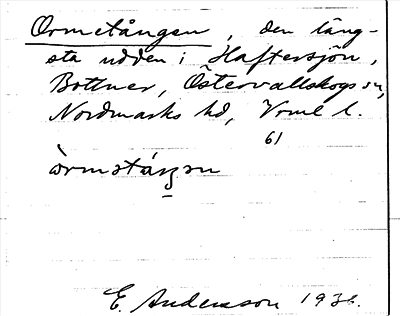 Ormetången, den läng-
sta udden i Haftersjön,
Bottner, Östervallskogs sn,
Nordmarks hd, Vrml l.
61
E. Andersson 1936.